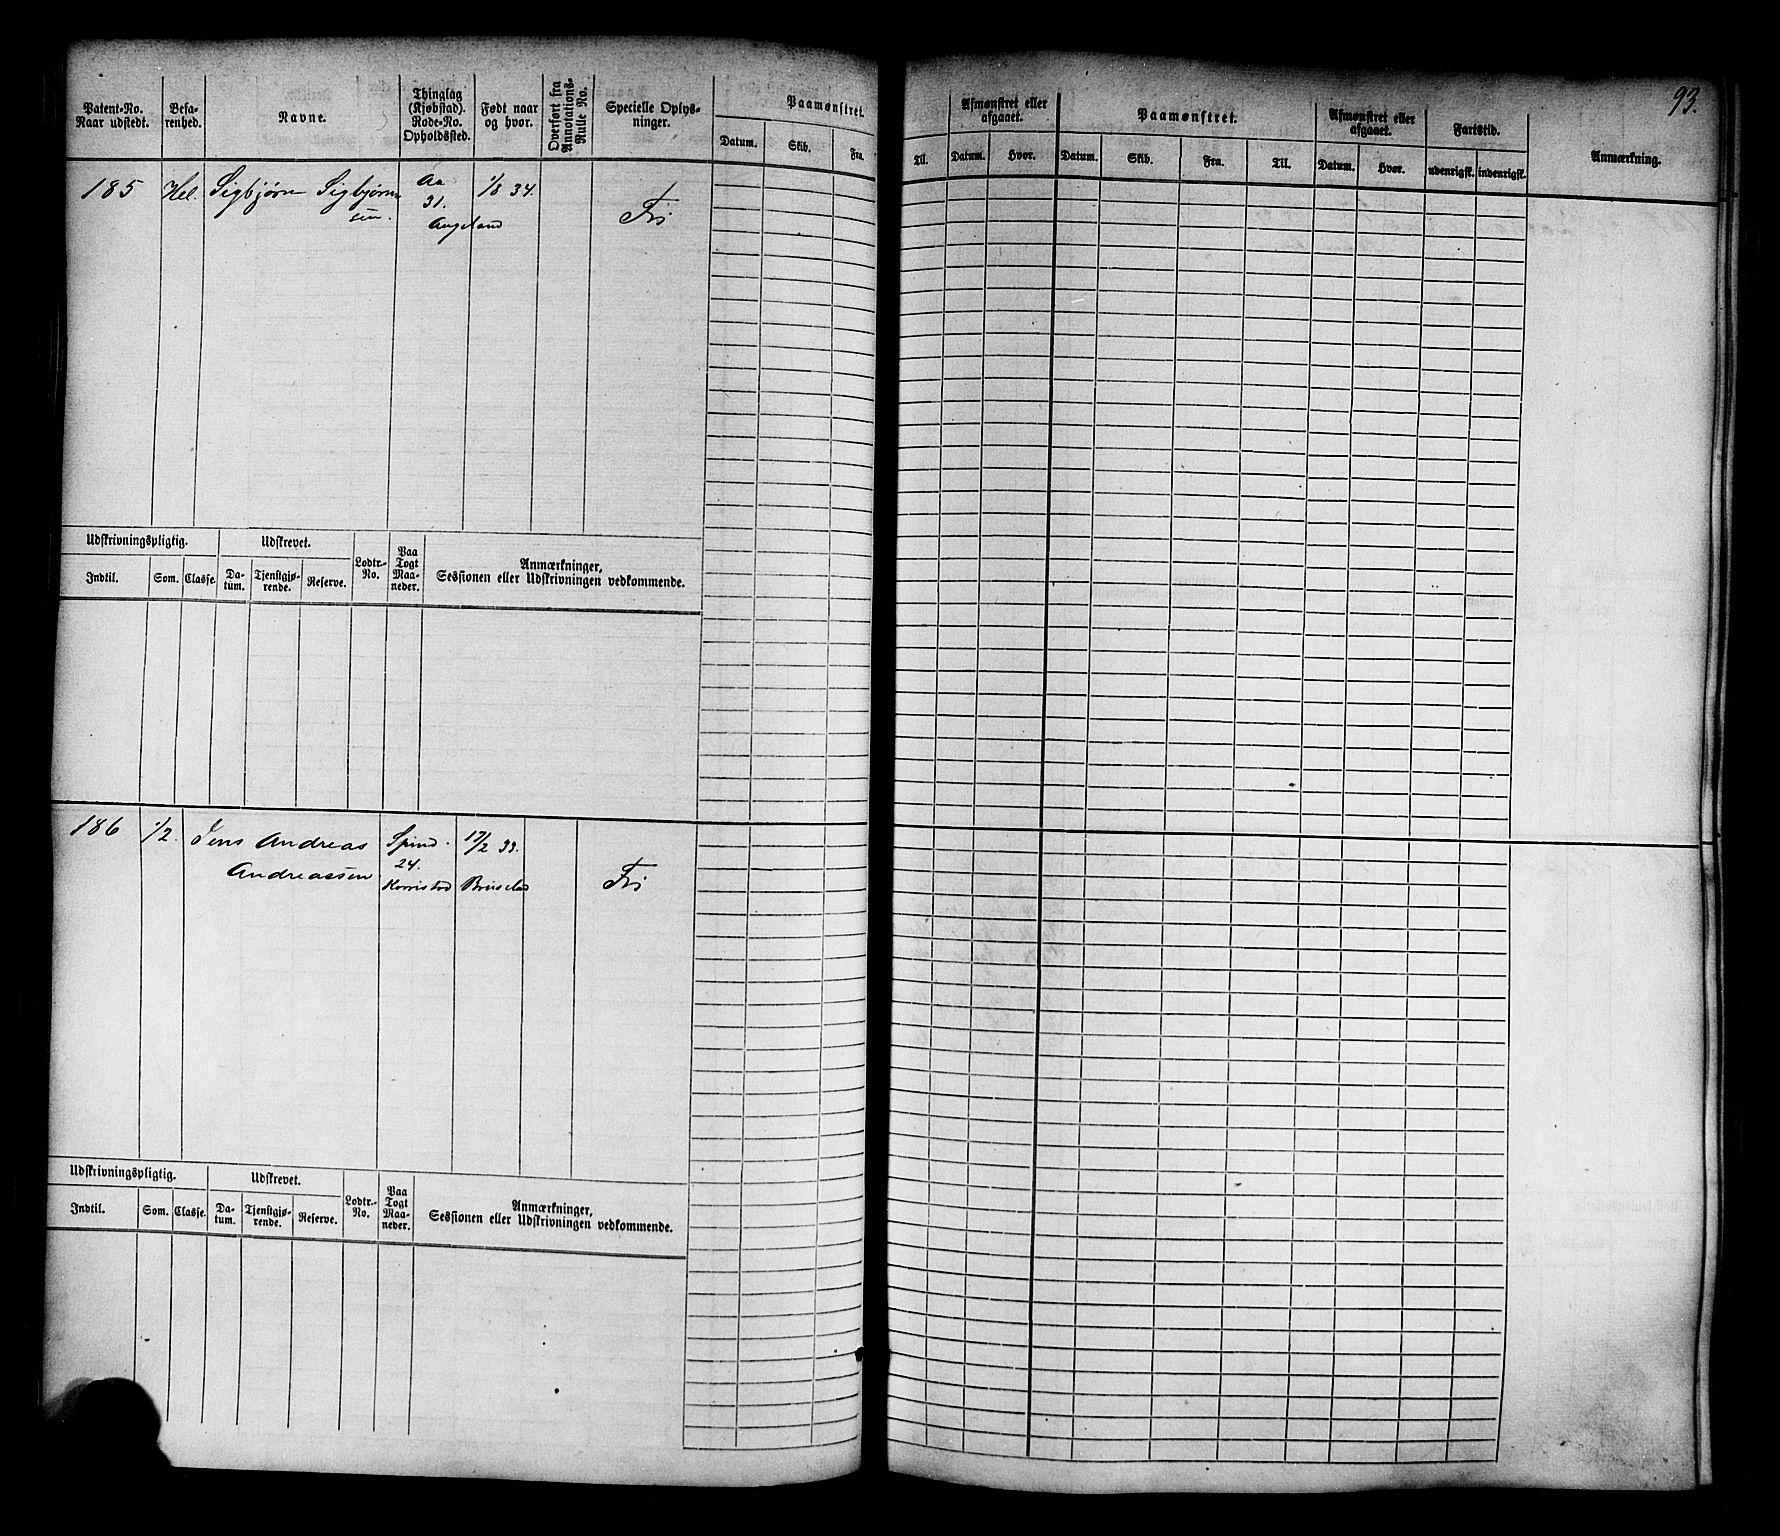 93.
Patent-No. Naar udstedt.
Befarenhed.
Navne.
Thinglag (Kjøbstad). Rode-No. Opholdssted.
Født naar og hvor.
Overført fra Annotations-Rulle No.
Specielle Oplysninger.
Paamønstret.
Datum. Skib. Fra. Til.
Afmønstret eller afgaaet.
Datum. Hvor.
Paamønstret.
Datum. Skib. Fra. Til.
Afmønstret eller afgaaet.
Datum. Hvor.
Fartstid.
udenrigsk. indenrigsk.
Anmærkning.
185 Hel. Sigbjørn Sigbjørn Aa 1/8 34.
sen. 31. Fri
Augeland
Udskrivningspligtig. Udskrevet. Lodtr.-No. Paa Togt Maaneder. Anmærkninger, Sessionen eller Udskrivningen vedkommende.
Indtil. Som. Classe. Datum. Tjenstgjørende. Reserve.
186 1/2. Jens Andreas Spind. 17/2 33.
Andreassen 24. Fri
Udskrivningspligtig. Udskrevet. Lodtr.-No. Paa Togt Maaneder. Anmærkninger, Sessionen eller Udskrivningen vedkommende.
Indtil. Som. Classe. Datum. Tjenstgjørende. Reserve.